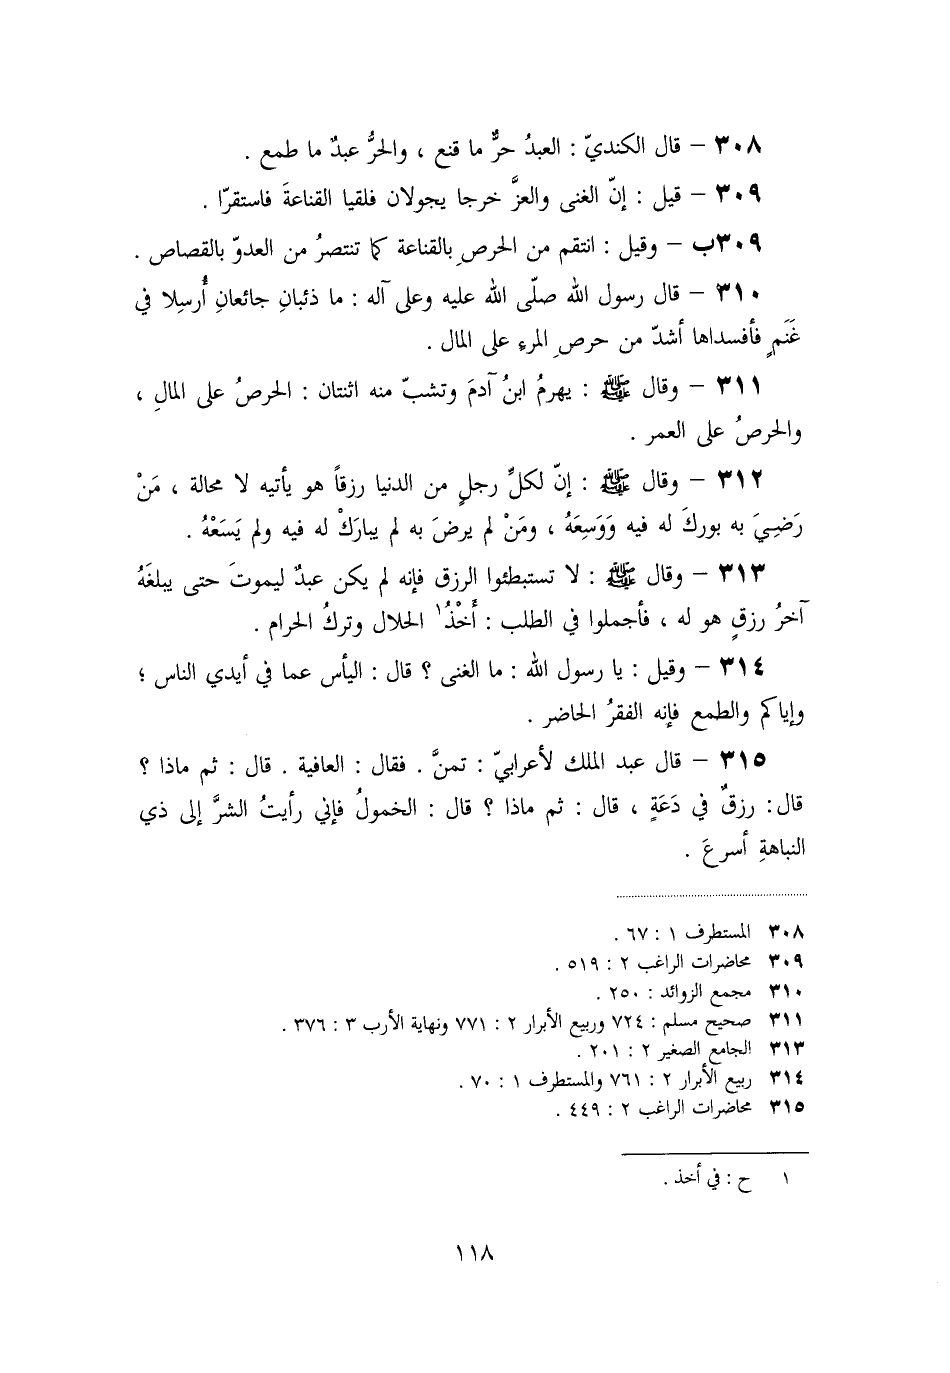 ٣٠٨ – قال الكنديّ : العبدُ حرٌّ ما قنع ، والحرُّ عبدٌ ما طمع .
٣٠٩ – قيل : إنّ الغنى والعزَّ خرجا يجولان فلقيا القناعةَ فاستقرّا .
٣٠٩ب – وقيل : انتقم من الحرصِ بالقناعة كما تنتصرُ من العدوّ بالقصاص .
٣١٠ – قال رسول الله صلّى الله عليه وعلى آله : ما ذئبانِ جائعانِ أُرسِلا في
غَنَمٍ فأفسداها أشدّ من حرصِ المرءِ على المال .
٣١١ – وقال ﷺ : يهرمُ ابنُ آدمَ وتشبّ منه اثنتان : الحرصُ على المالِ ،
والحرصُ على العمر .
٣١٢ – وقال ﷺ : إنّ لكلِّ رجلٍ من الدنيا رزقاً هو يأتيه لا محالة ، مَنْ
رَضِيَ به بوركَ له فيه وَوَسِعَهُ ، ومَنْ لم يرضَ به لم يبارَكْ له فيه ولم يَسَعْهُ .
٣١٣ – وقال ﷺ : لا تستبطئوا الرزق فإنه لم يكن عبدٌ ليموتَ حتى يبلغَهُ
آخرُ رزقٍ هو له ، فأجملوا في الطلب : أَخْذُ١ الحلال وتركُ الحرام .
٣١٤ – وقيل : يا رسول الله : ما الغنى ؟ قال : اليأس عما في أيدي الناس ؛
وإياكم والطمع فإنه الفقرُ الحاضر .
٣١٥ – قال عبد الملك لأعرابيّ : تمنَّ . فقال : العافية . قال : ثم ماذا ؟
قال : رزقٌ في دَعَةٍ ، قال : ثم ماذا ؟ قال : الخمولُ فإني رأيتُ الشرَّ إلى ذي
النباهةِ أسرعَ .
٣٠٨ المستطرف ١ : ٦٧ .
٣٠٩ محاضرات الراغب ٢ : ٥١٩ .
٣١٠ مجمع الزوائد : ٢٥٠ .
٣١١ صحيح مسلم : ٧٢٤ وربيع الأبرار ٢ : ٧٧١ ونهاية الأرب ٣ : ٣٧٦ .
٣١٣ الجامع الصغير ٢ : ٢٠١ .
٣١٤ ربيع الأبرار ٢ : ٧٦١ والمستطرف ١ : ٧٠ .
٣١٥ محاضرات الراغب ٢ : ٤٤٩ .
١ ح : في أخذ .
١١٨